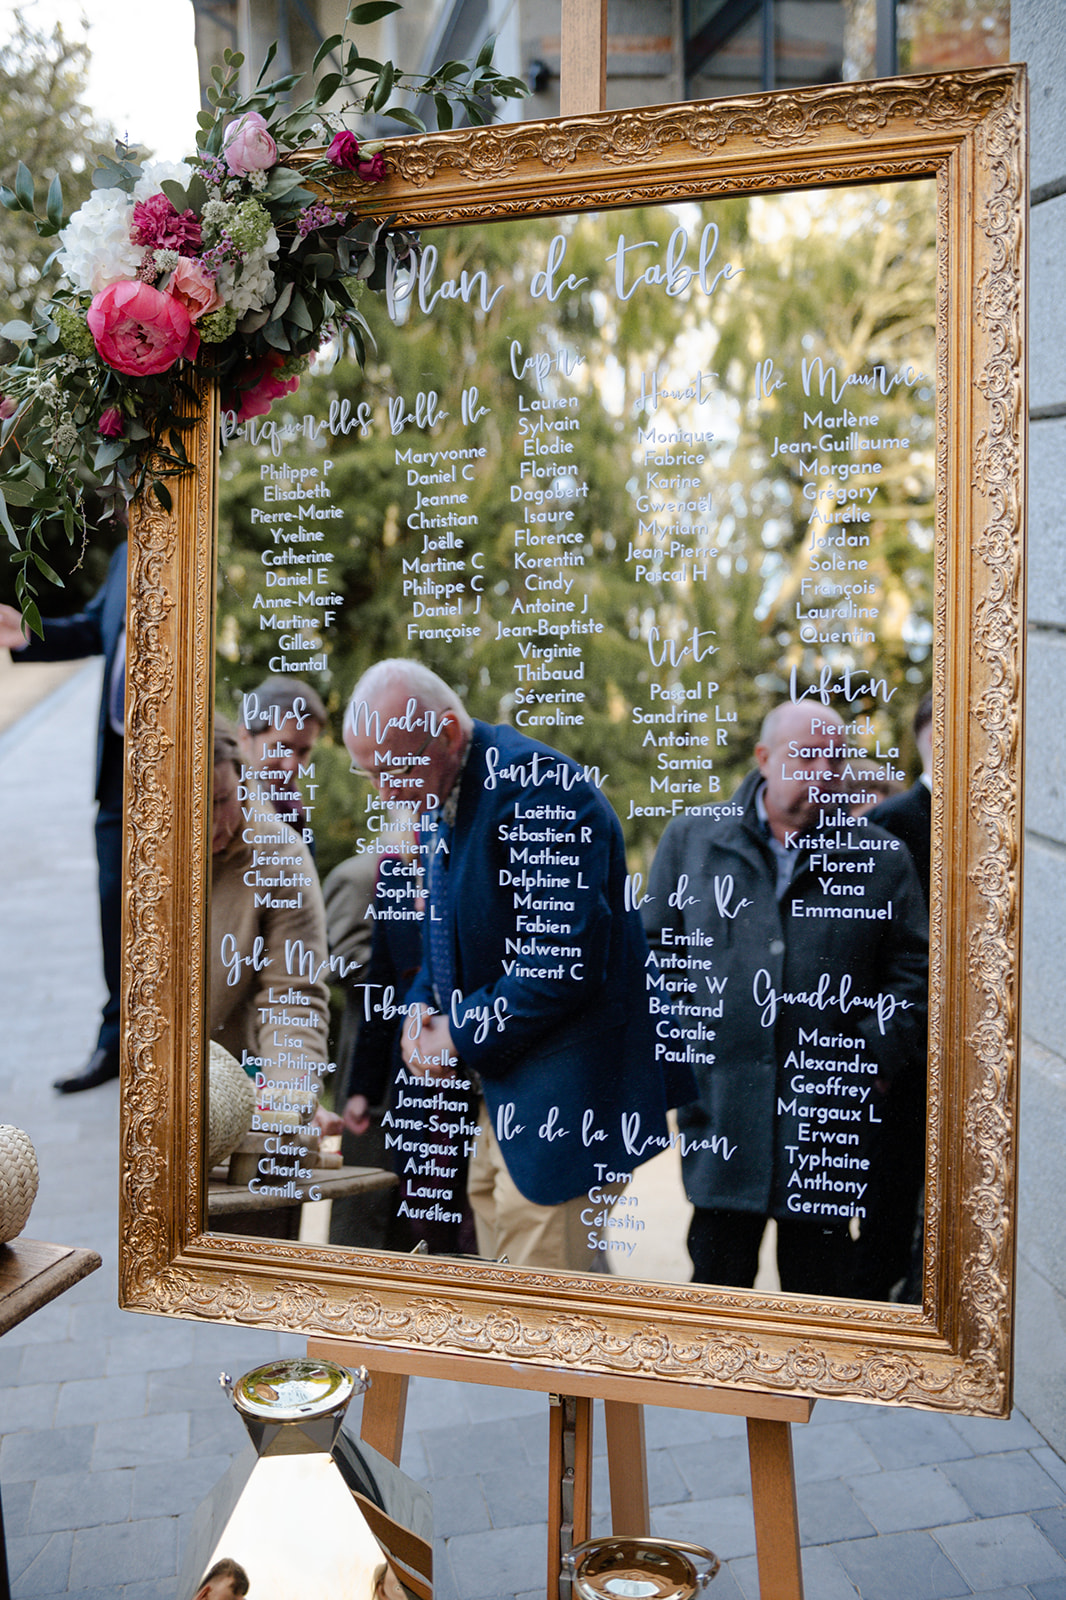 Plan de table
Porquerolles
Philippe P
Elisabeth
Pierre-Marie
Yveline
Catherine
Daniel E
Anne-Marie
Martine F
Gilles
Chantal
Belle Ile
Maryvonne
Daniel C
Jeanne
Christian
Joëlle
Martine C
Philippe C
Daniel J
Françoise
Capri
Lauren
Sylvain
Elodie
Florian
Dagobert
Isaure
Florence
Korentin
Cindy
Antoine J
Jean-Baptiste
Virginie
Thibaud
Séverine
Caroline
Houat
Monique
Fabrice
Karine
Gwenaël
Myriam
Jean-Pierre
Pascal H
Ile Maurice
Marlène
Jean-Guillaume
Morgane
Grégory
Aurélie
Jordan
Solène
François
Lauraline
Quentin
Paros
Julie
Jérémy M
Delphine T
Vincent T
Camille B
Jérôme
Charlotte
Manel
Madere
Marine
Pierre
Jérémy D
Christelle
Sébastien A
Cécile
Sophie
Antoine L
Santorin
Laëtitia
Sébastien R
Mathieu
Delphine L
Marina
Fabien
Nolwenn
Vincent C
Crete
Pascal P
Sandrine Lu
Antoine R
Samia
Marie B
Jean-François
Lofoten
Pierrick
Sandrine La
Laure-Amélie
Romain
Julien
Kristel-Laure
Florent
Yana
Emmanuel
Gili Meno
Lolita
Thibault
Lisa
Jean-Philippe
Domitille
Hubert
Benjamin
Claire
Charles
Camille G
Tobago Cays
Axelle
Ambroise
Jonathan
Anne-Sophie
Margaux H
Arthur
Laura
Aurélien
Ile de Re
Emilie
Antoine
Marie W
Bertrand
Coralie
Pauline
Ile de la Reunion
Tom
Gwen
Célestin
Samy
Guadeloupe
Marion
Alexandra
Geoffrey
Margaux L
Erwan
Typhaine
Anthony
Germain